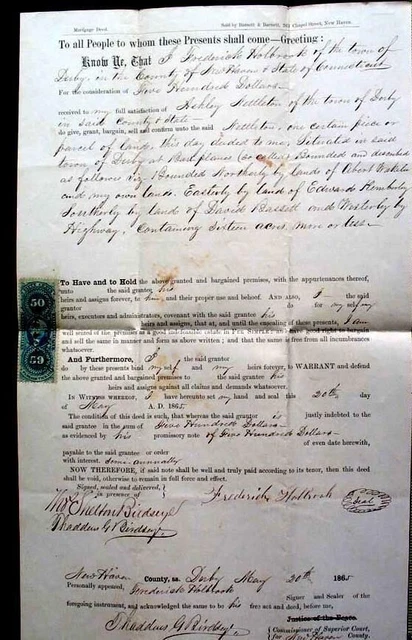 Mortgage Deed. Sold by Benedict & Barnett, Chapel Street, New Haven.
To all People to whom these Presents shall come—Greeting:
Know Ye, That I Frederick Holbrook of the town of
Derby, in the County of New Haven & State of Connecticut
For the consideration of Five Hundred Dollars
received to my full satisfaction of Ashley Nettleton of the town of Derby
in said County & State
do give, grant, bargain, sell and confirm unto the said Nettleton, one certain piece or
parcel of land, this day deeded to me, Situated in said
town of Derby at (so called) Bounded and described
as follows viz: Bounded Northerly by lands of
and my own land. Easterly by land of Edward
Southerly by land of David Bassett and Westerly by
Highway; Containing sixteen acres more or less
To Have and to Hold the above granted and bargained premises, with the appurtenances thereof,
unto the said grantee his
heirs and assigns forever, to him and their proper use and behoof. And also, I the said
grantor do for my self my
heirs, executors and administrators, covenant with the said grantee his
heirs and assigns, that at, and until the ensealing of these presents, I am
well seized of the premises as a good indefeasible estate in Fee Simple; and have good right to bargain
and sell the same in manner and form as above written; and that the same is free from all incumbrances
whatsoever.
And Furthermore, I the said grantor
do by these presents bind my self and my heirs forever, to WARRANT and defend
the above granted and bargained premises to the said grantee his
heirs and assigns against all claims and demands whatsoever.
In Witness Whereof, I have hereunto set my hand and seal this 20th day
of May A. D. 1865
The condition of this deed is such, that whereas the said grantor is justly indebted to the
said grantee in the sum of Five Hundred Dollars
as evidenced by his promissory note of Five Hundred Dollars
of even date herewith,
payable to the said grantee or order
with interest. Semi-annually
NOW THEREFORE, if said note shall be well and truly paid according to its tenor, then this deed
shall be void, otherwise to remain in full force and effect.
Signed, sealed and delivered,
in presence of
Frederick Holbrook Seal
Wm Shelton Birdseye
Thaddeus G Birdseye
New Haven County, ss. Derby May 20th 1865
Personally appeared, Frederick Holbrook
Signer and Sealer of the
foregoing instrument, and acknowledged the same to be his free act and deed, before me,
Justice of the Peace.
Thaddeus G Birdseye
Commissioner of Superior Court,
for New Haven County.
50
50